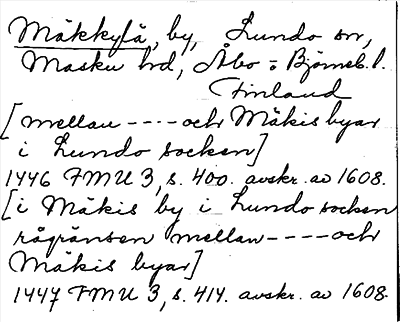 Mäkkylä, by, Lundo sn,
Masku hd, Åbo o. Björneb. l.
Finland
[mellan ---- och Mäkis byar
i Lundo socken]
1446 FMU 3, s. 400. avskr. av 1608.
[i Mäkis by i Lundo socken
rågränsen mellan ---- och
Mäkis byar]
1447 FMU 3, s. 414. avskr. av 1608.